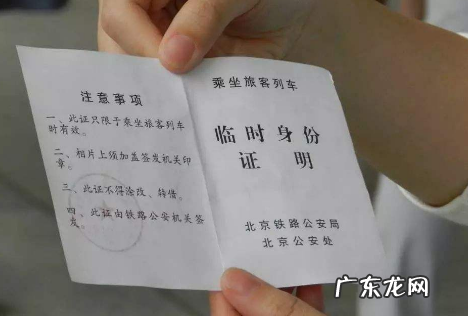 注意事项
一、此证只限于乘坐旅客列车
时有效。
二、相片上须加盖签发机关印
章。
三、此证不得涂改、转借。
四、此证由铁路公安机关签
发。
乘坐旅客列车
临时身份
证明
北京铁路公安局
北京公安处
广东龙网